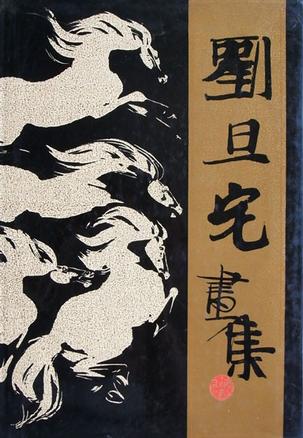 劉旦宅
畫集